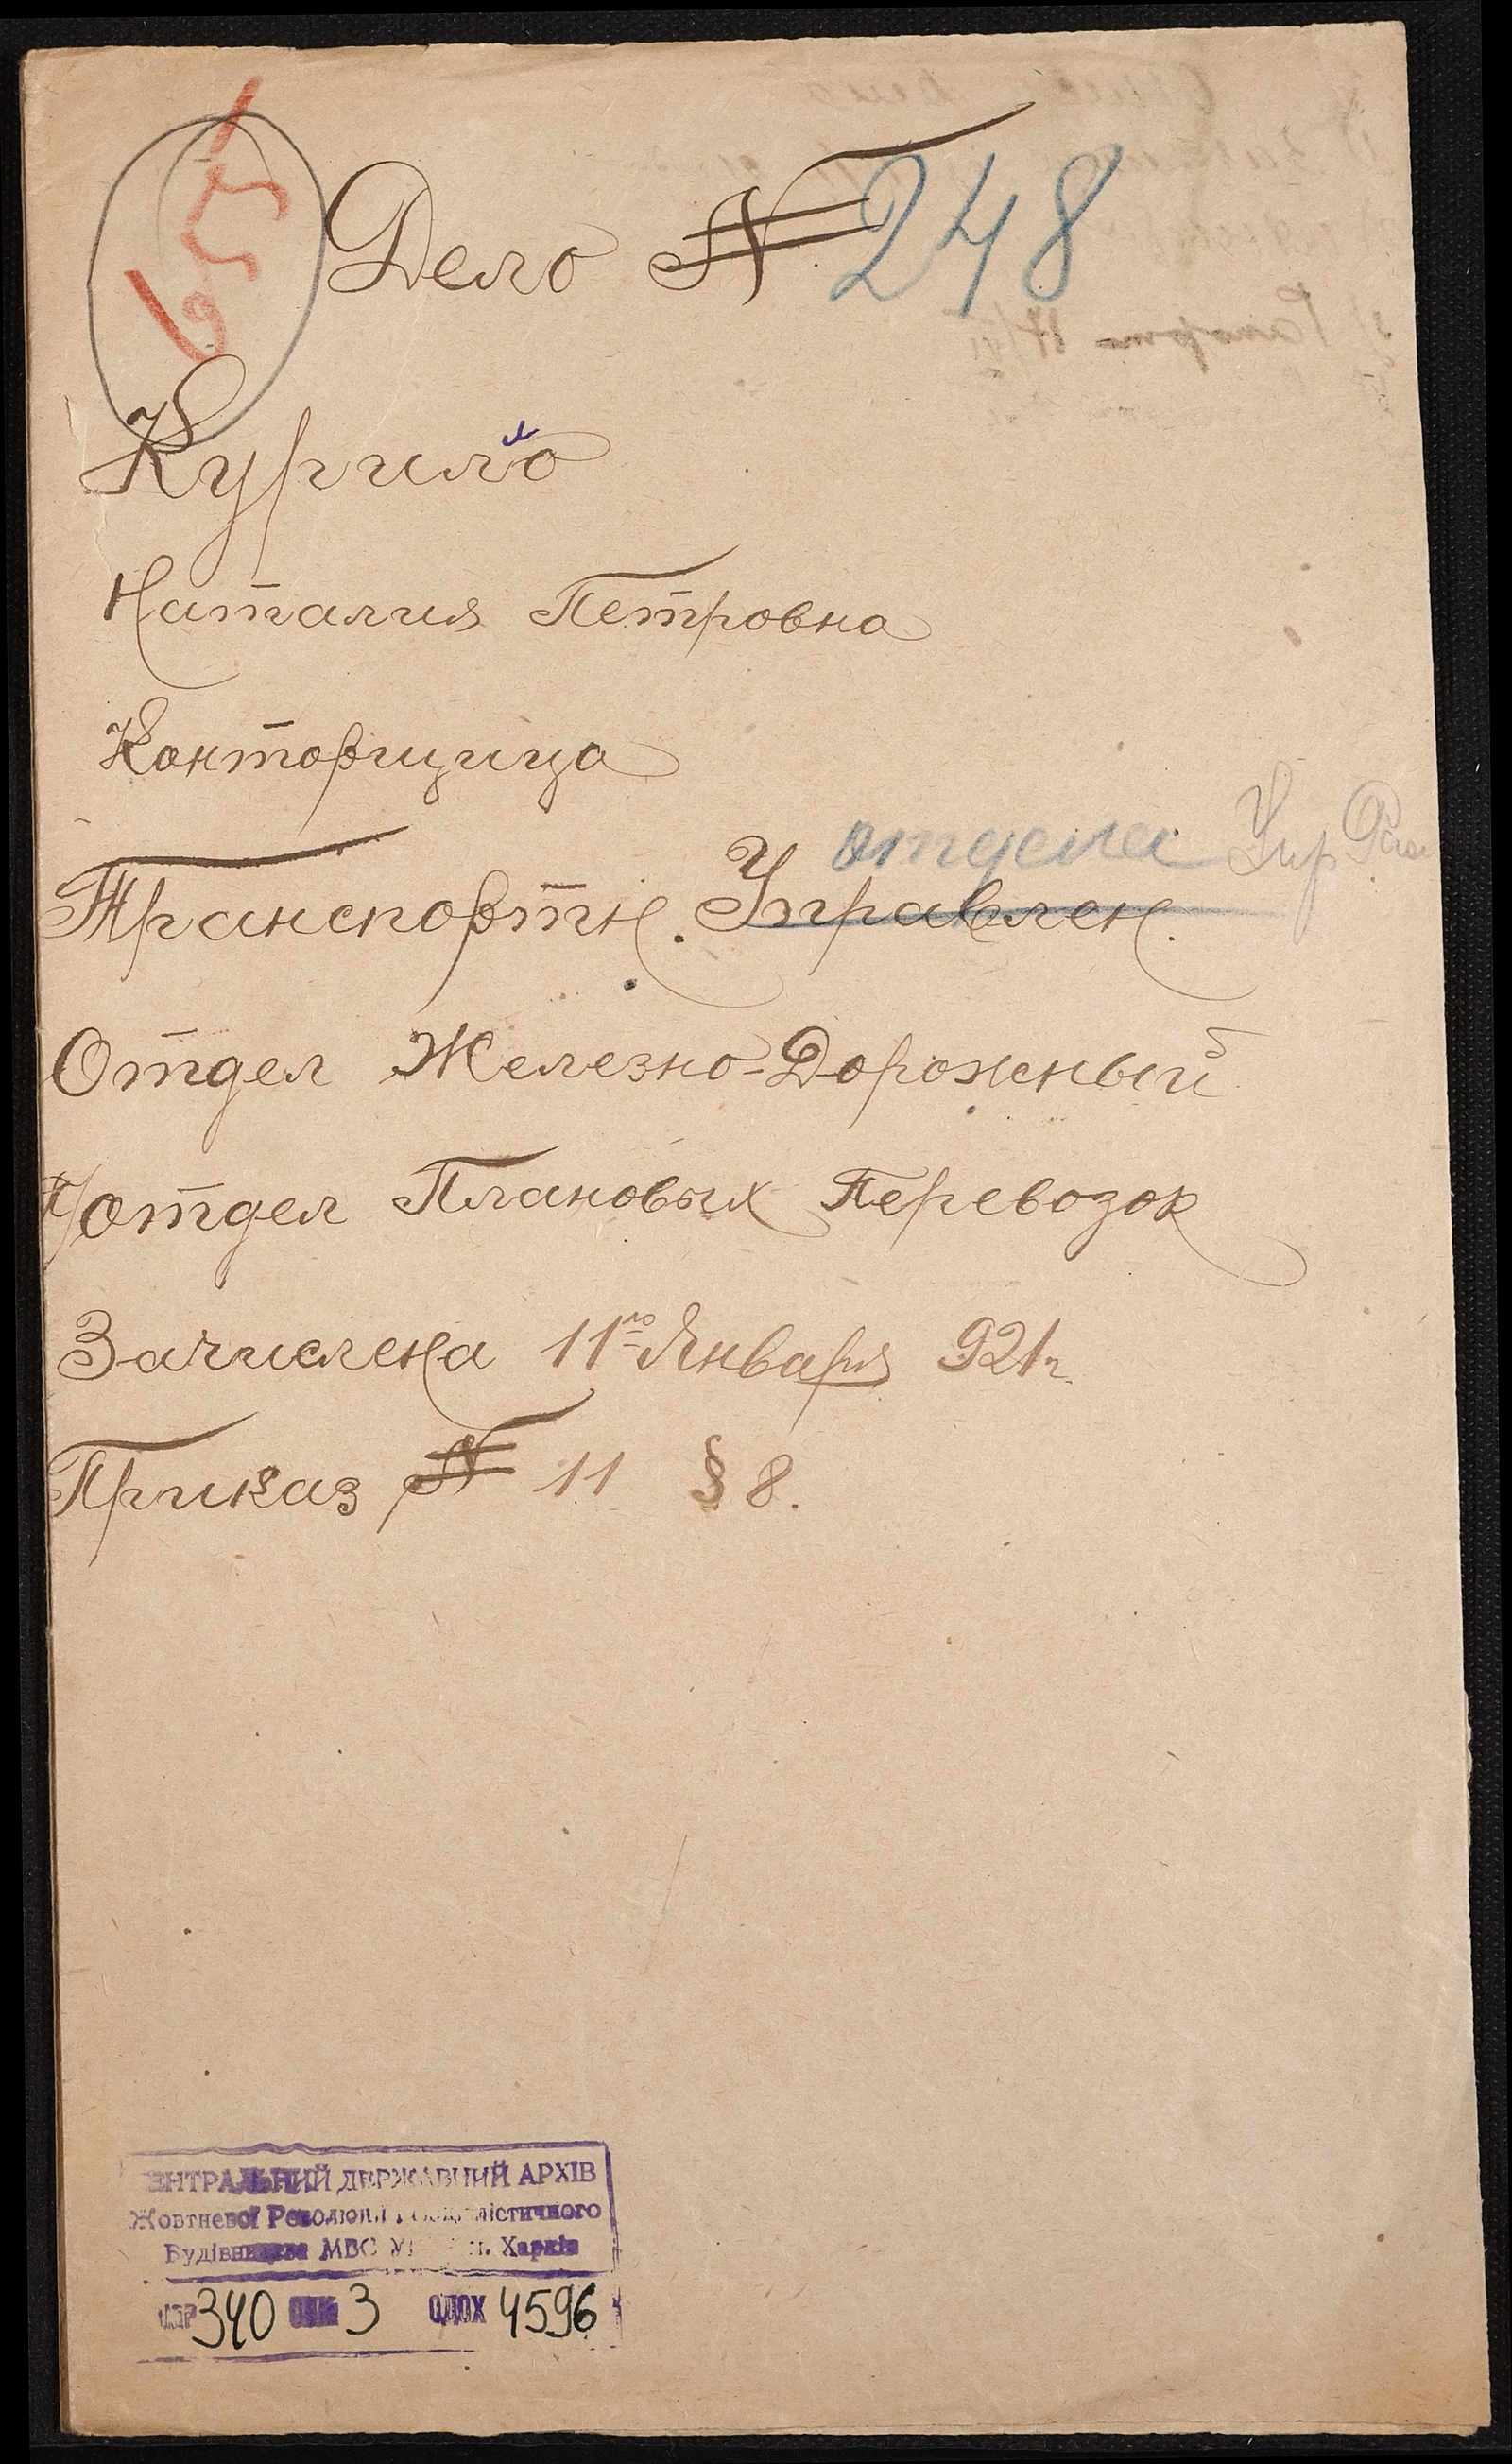 Дело № 248
Курило
л
Наталия Петровна
Конторщица
отдела Упр
Транспортн. Управлен.
Отдел Железно-Дорожный
П/отдел Плановых Перевозок
Зачислена 11го Января 921 г.
Приказ № 11 § 8.
ЦЕНТРАЛЬНИЙ ДЕРЖАВНИЙ АРХІВ
Жовтневої Революції Соціалістичного
Будівництва МВС У м. Харків
340 3 ОДОХ 4596